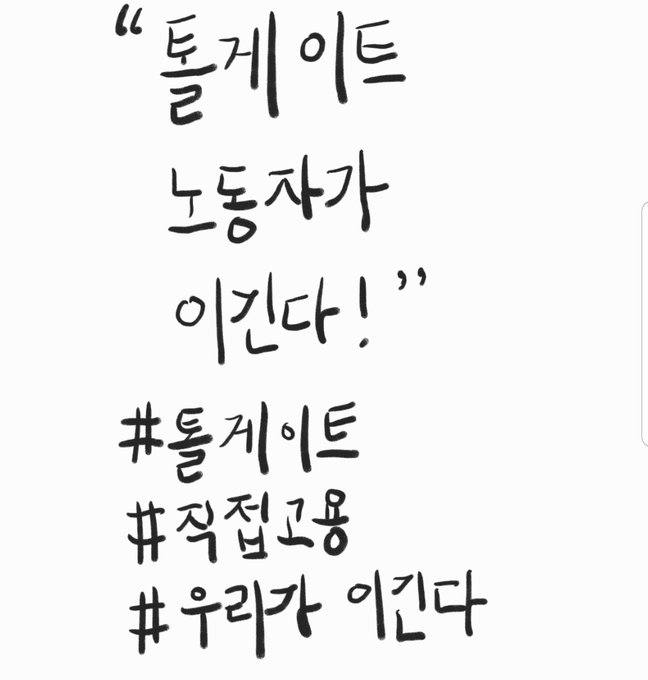 “톨게이트
노동자가
이긴다!”
#톨게이트
#직접고용
#우리가 이긴다